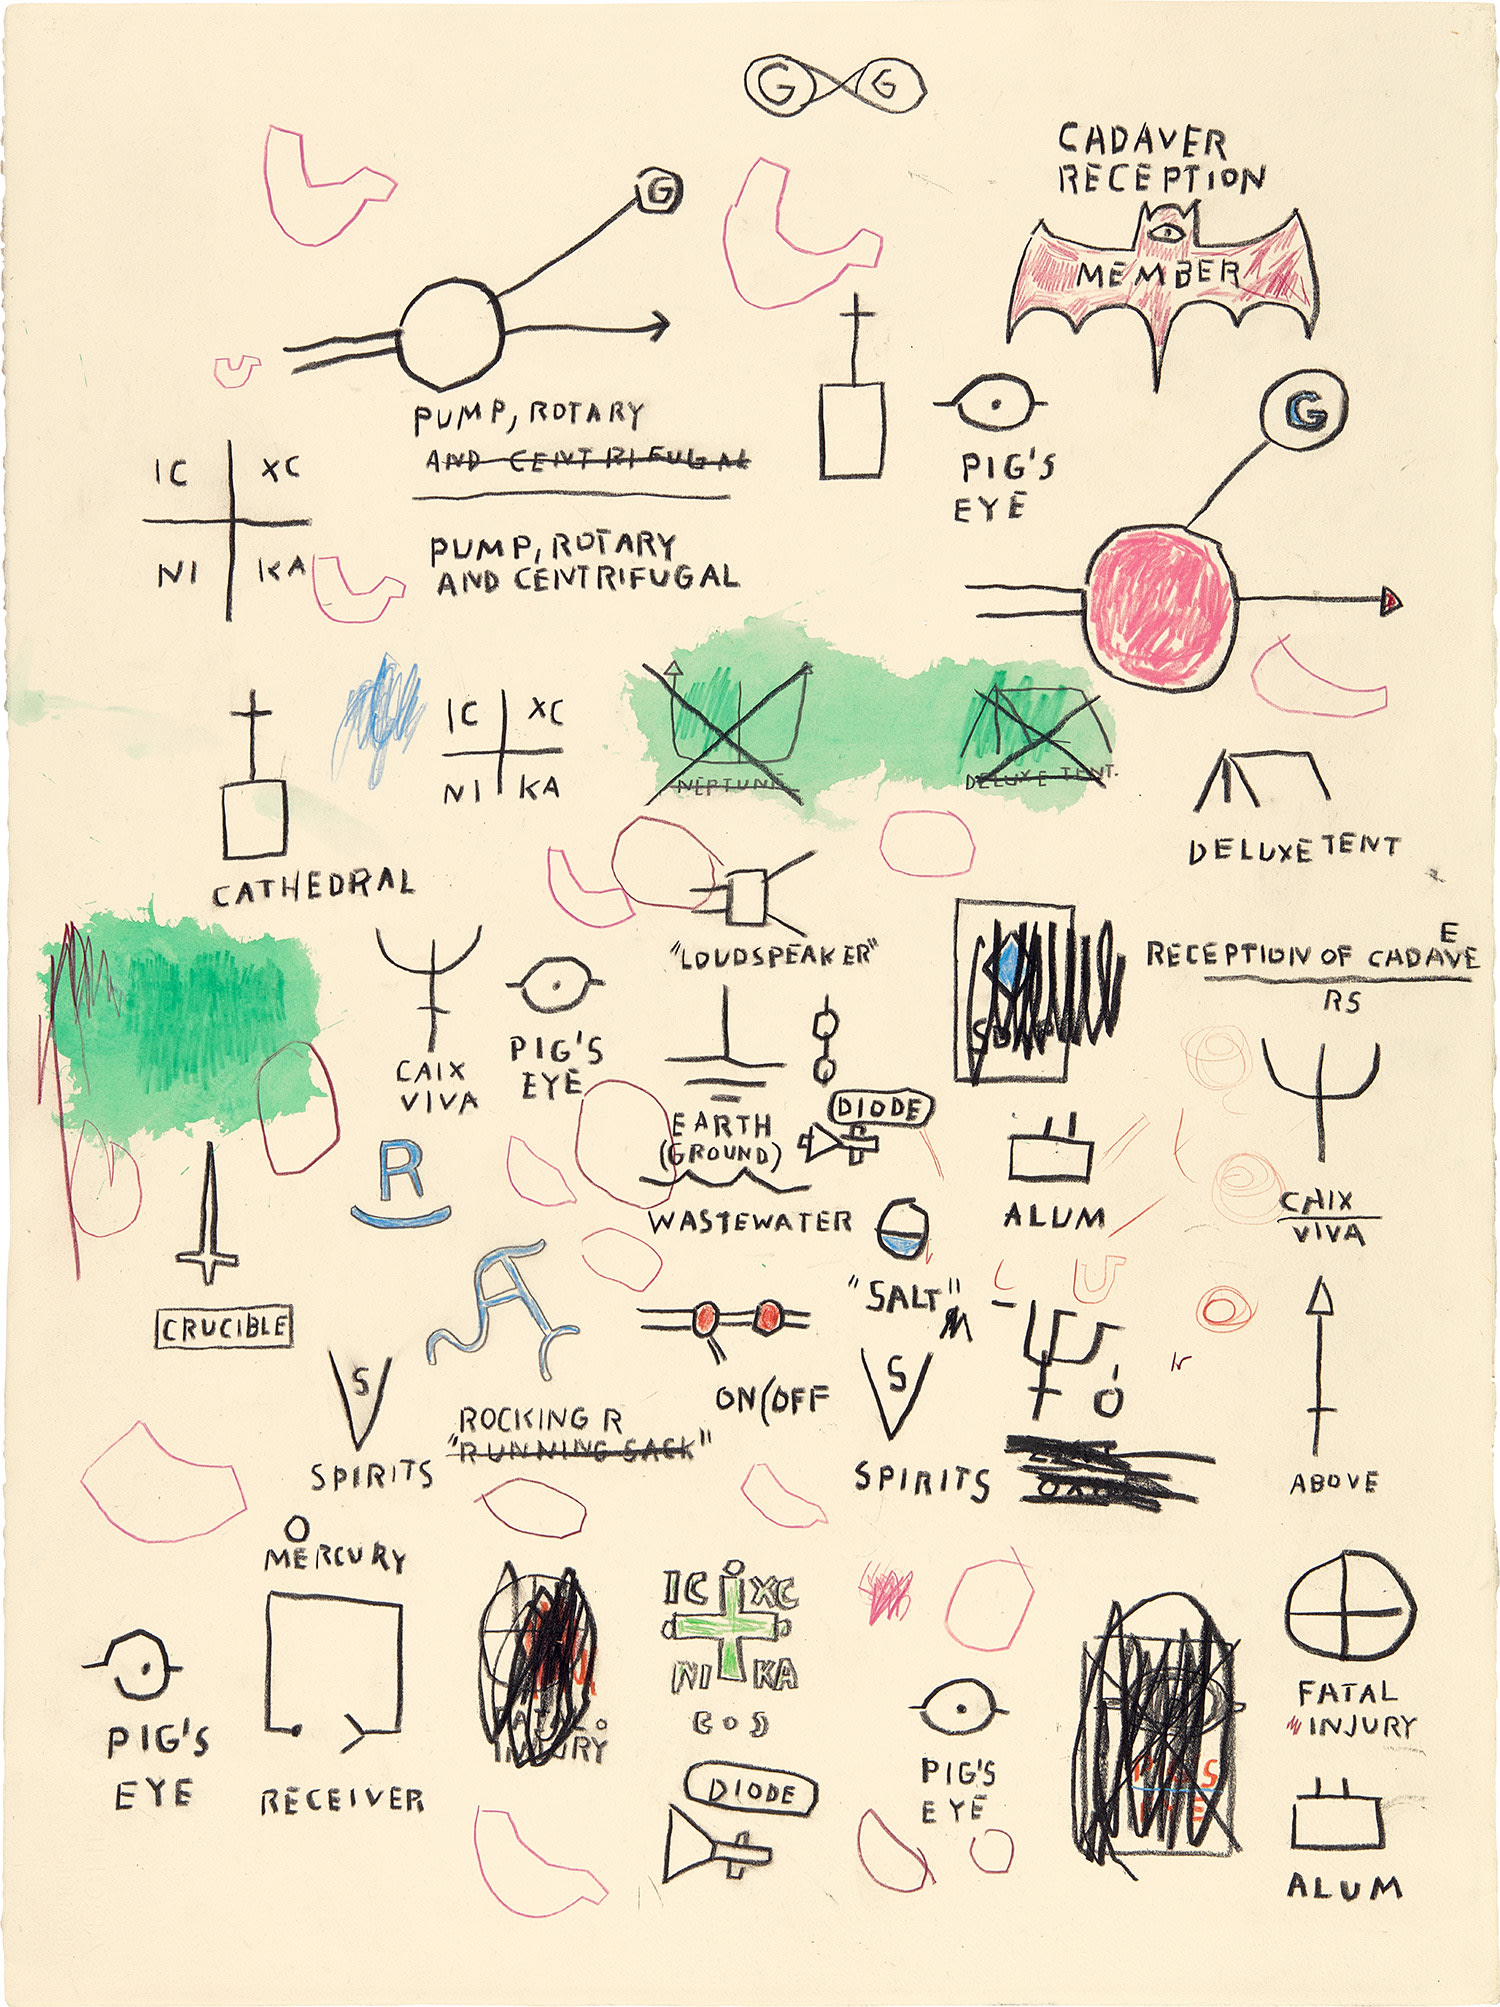 G G
CADAVER
RECEPTION
MEMBER
G
PUMP, ROTARY
AND CENTRIFUGAL
PUMP, ROTARY
AND CENTRIFUGAL
IC XC
NI KA
PIG'S
EYE
G
IC XC
NI KA
NEPTUNE
DELUXE TENT.
DELUXE TENT
CATHEDRAL
"LOUDSPEAKER"
E
RECEPTION OF CADAVE
RS
CAIX
VIVA
PIG'S
EYE
EARTH
(GROUND)
DIODE
WASTEWATER
ALUM
CAIX
VIVA
R
CRUCIBLE
"SALT"
S
SPIRITS
ROCKING R
"RUNNING SACK"
ON(OFF
S
SPIRITS
ABOVE
MERCURY
PIG'S
EYE
RECEIVER
FATAL
INJURY
IC XC
NI KA
DIODE
PIG'S
EYE
PIG'S
EYE
FATAL
INJURY
ALUM